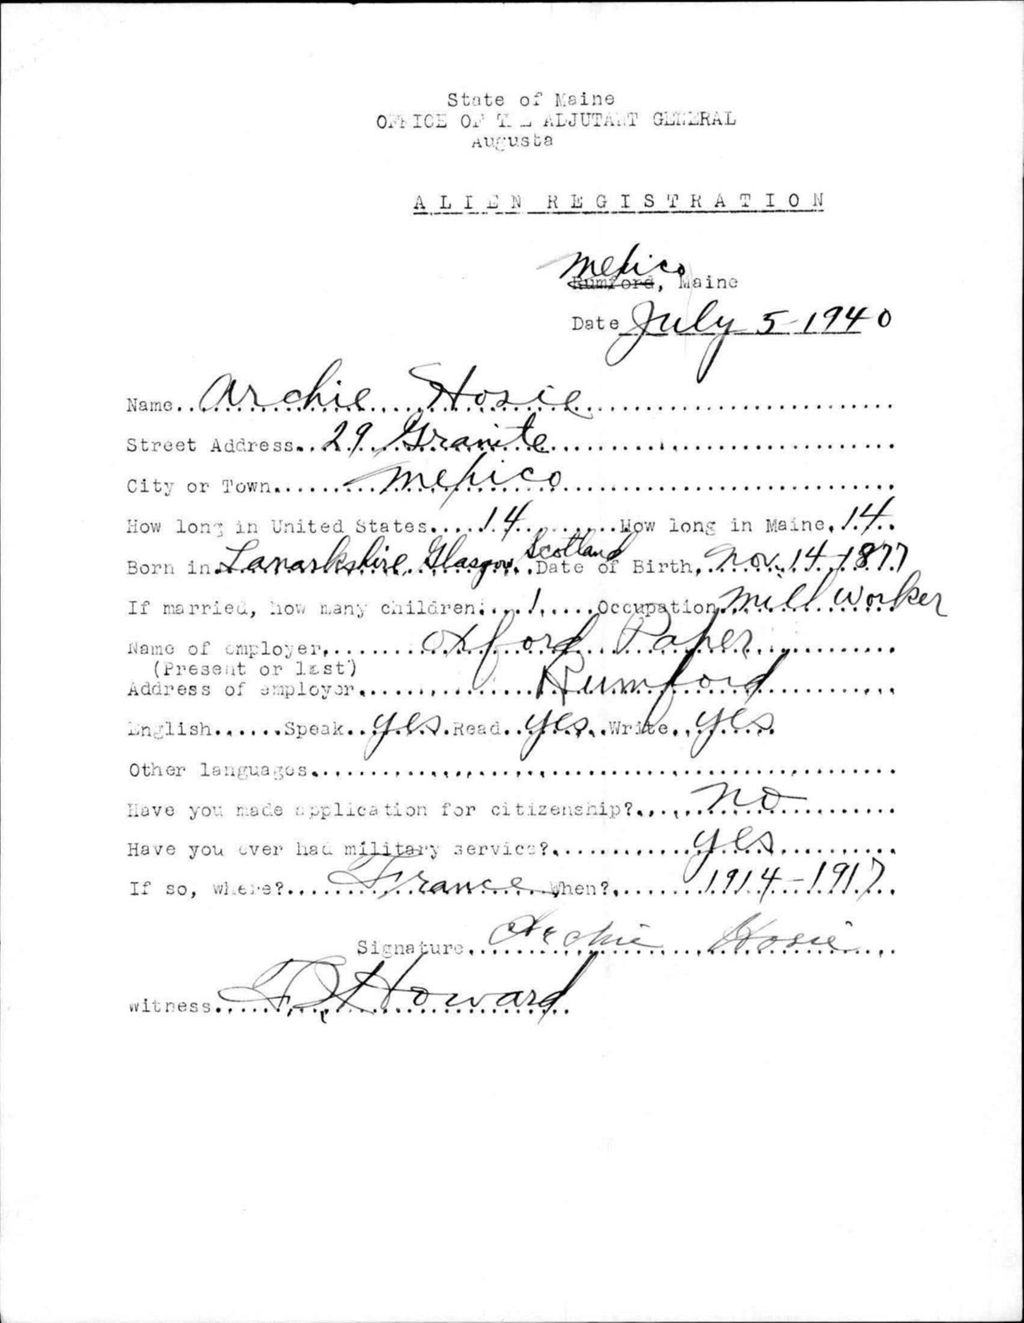 State of Maine
OFFICE OF THE ADJUTANT GENERAL
Augusta
ALIEN REGISTRATION
Mexico
Rumford, Maine
Date July 5-1940
Name..Archie Hosie
Street Address..29 Granite
City or Town......Mexico
How long in United States....14.........How long in Maine.14..
Born in.Lanarkshire, Glasgow, Scotland.Date of Birth, Nov. 14-1877
If married, how many children....1.....Occupation Mill Worker
Name of employer,........Oxford Paper
(Present or last)
Address of employer..............Rumford
English......Speak..yes.Read..yes..Write..yes
Other languages.
Have you made application for citizenship?....no
Have you ever had military service?............yes
If so, where?......France..When?.......1914-1917..
Signature..Archie Hosie
Witness..F. D. Howard